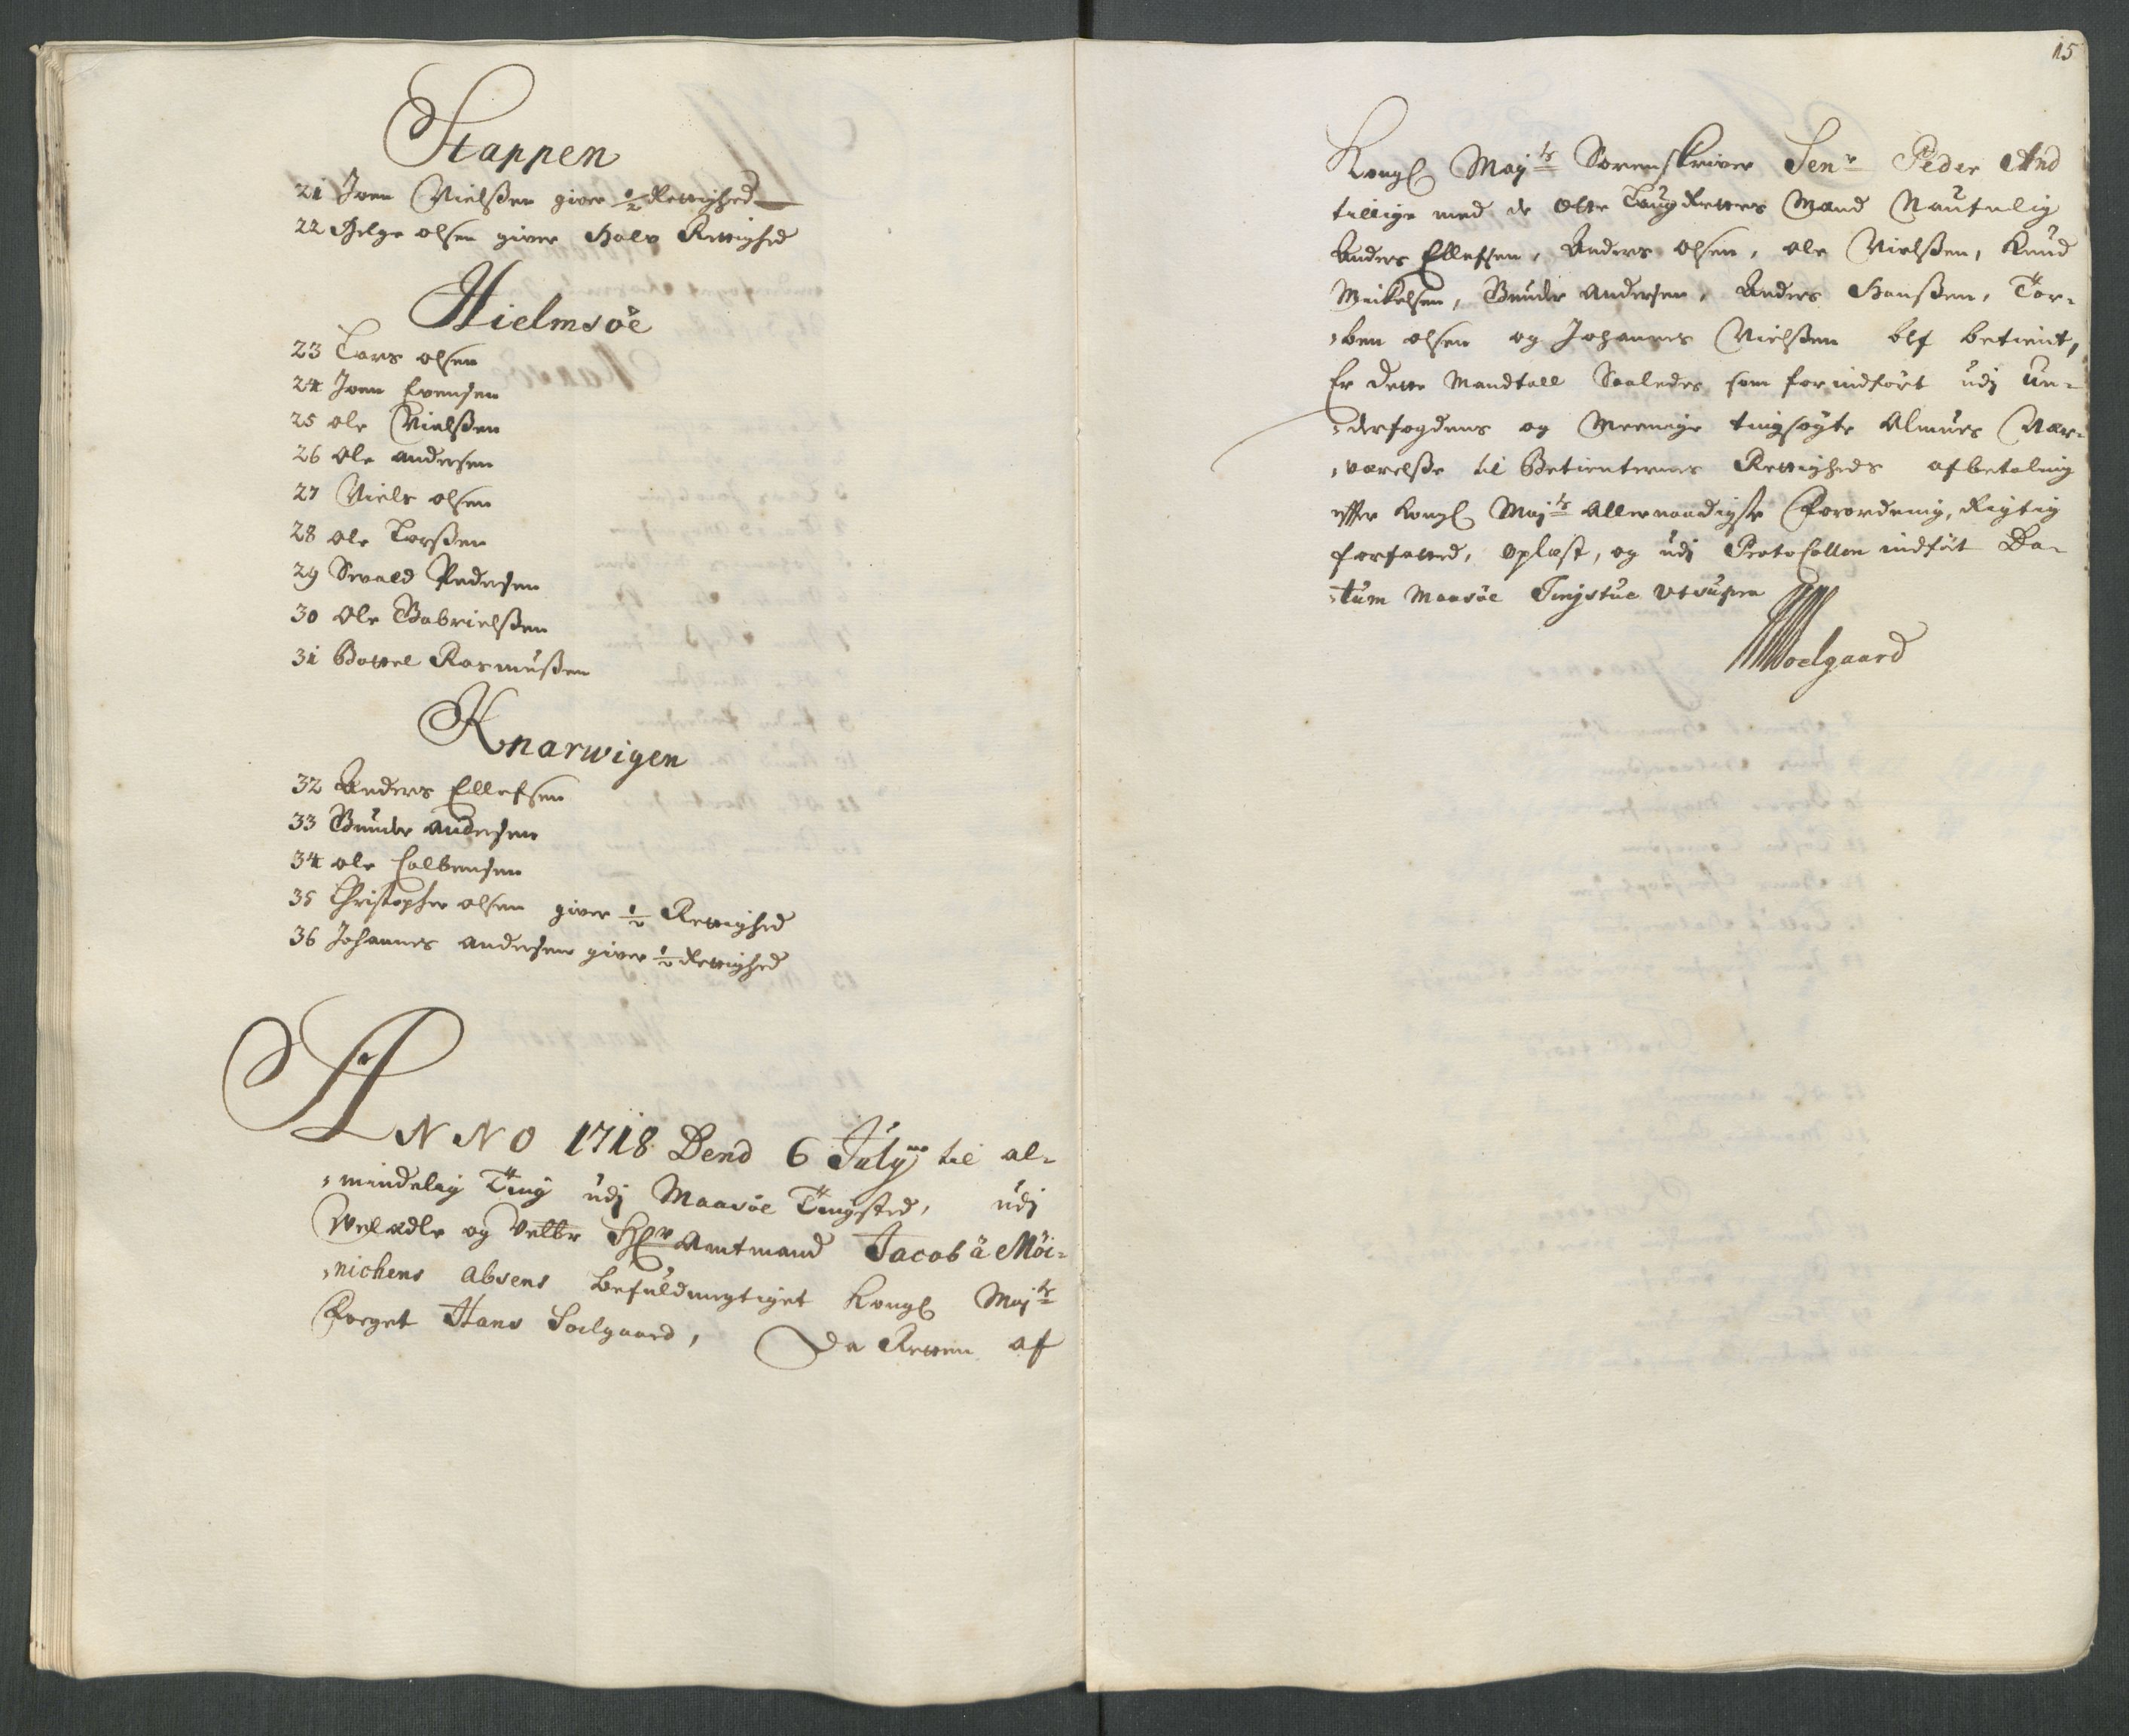 Stappen
21 Joen Nielsßen giver ½ Rettighed
22 Helge olsen giver Halv Rettighed
Hielmsöe
23 Lars olsen
24 Joen Evensen
25 ole Nielsßen
26 ole andersen
27 Niels olsen
28 ole Larsßen
29 Sivald Pedersen
30 ole Gabrielsßen
31 Bottel Rasmusßen
Knarwigen
32 Anders Ellefsen
33 Gunder andersen
34 ole Colbensen
35 Christopher olsen giver ½ Rettighed
36 Johannes andersen giver ½ Rettighed
ANNO 1718 Dend 6 July til al-
mindelig Ting udj Maasöe Tingsted, udj
Velædle og Velbr Hr Amtmand Jacob á Möi-
nichens absens befuldmegtiget Kongl Majts
Foeget Hans Soelgaard, Da Retten af
15
Kongl Majts Sorenskriver Senr Peder And
tillige med de Otte Laug Rettes Mænd Naufnlig
Anders Ellefsen, Anders olsen, ole Nielsßen, Knud
Mickelsen, Gunder Andersen, Anders Hansßen, Tor-
ben olsen og Johannes Nielsßen blf betient,
Er dette Mandtall Saaledes som forindfört udj Un-
derfogdens og Meenige tingsøgte Almues Nær-
værelsße til Betienternes Rettigheds afbetaling
effter Kongl Majts Allernaadigste Forordning, Rigtig
forfatted, Oplæst, og udj Protocollen indfört Da-
tum Maasöe Tingstue Ut supra
Soelgaard